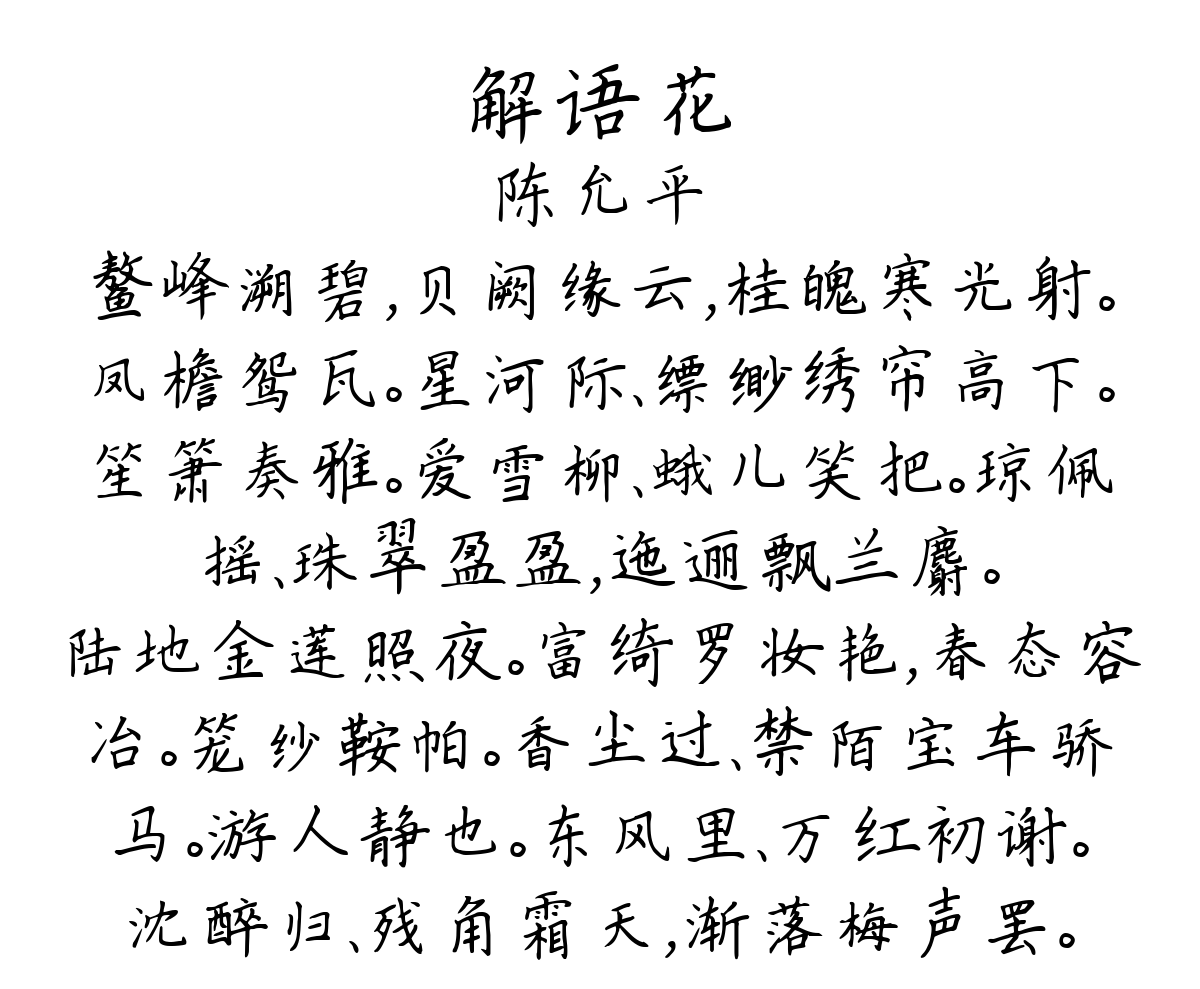 解语花
陈允平
鳌峰溯碧,贝阙缘云,桂魄寒光射。
凤檐鸳瓦。星河际、缥缈绣帘高下。
笙箫奏雅。爱雪柳、蛾儿笑把。琼佩
摇、珠翠盈盈,迤逦飘兰麝。
陆地金莲照夜。富绮罗妆艳,春态容
冶。笼纱鞍帕。香尘过、禁陌宝车骄
马。游人静也。东风里、万红初谢。
沈醉归、残角霜天,渐落梅声罢。